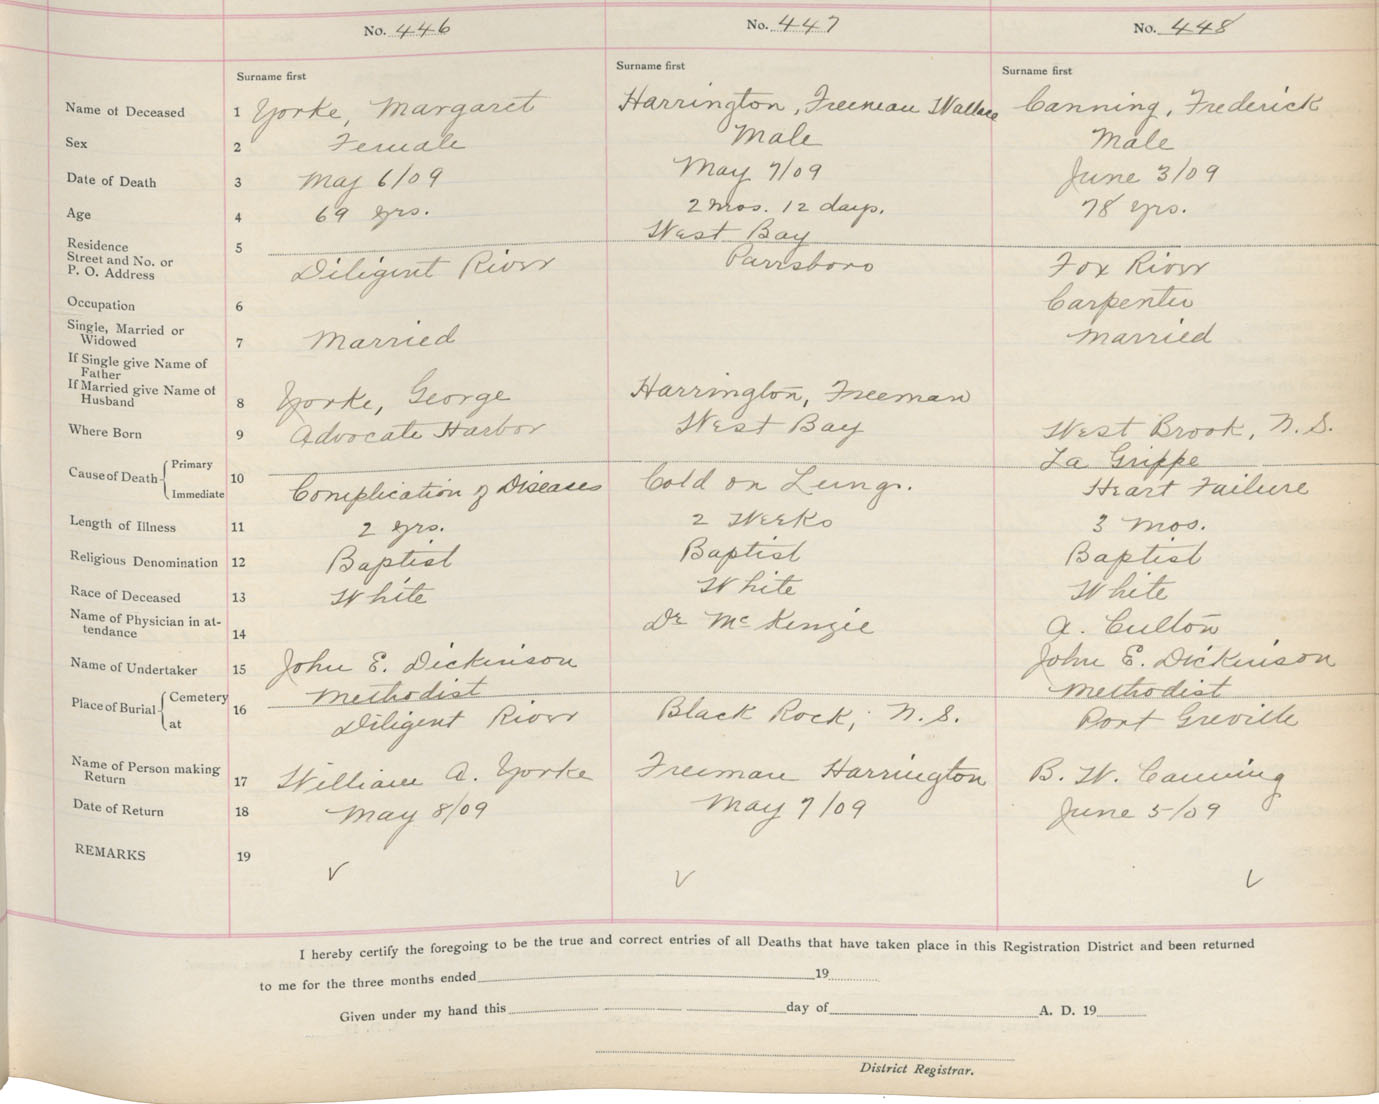 No. 446 No. 447 No. 448
Surname first Surname first Surname first
Name of Deceased 1 Yorke, Margaret Harrington, Freeman Wallace Canning, Frederick
Sex 2 Female Male Male
Date of Death 3 May 6/09 May 7/09 June 3/09
Age 4 69 yrs. 2 mos. 12 days. 78 yrs.
Residence 5 West Bay
Street and No. or
P. O. Address Diligent River Parrsboro Fox River
Occupation 6 Carpenter
Single, Married or
Widowed 7 Married Married
If Single give Name of
Father
If Married give Name of
Husband 8 Yorke, George Harrington, Freeman
Where Born 9 Advocate Harbor West Bay West Brook, N.S.
Cause of Death Primary 10 La Grippe
Immediate Complication of Diseases Cold on Lungs. Heart Failure
Length of Illness 11 2 yrs. 2 Weeks 3 mos.
Religious Denomination 12 Baptist Baptist Baptist
Race of Deceased 13 White White White
Name of Physician in at-
tendance 14 Dr McKenzie A. Culton
Name of Undertaker 15 John E. Dickinson John E. Dickinson
Place of Burial Cemetery 16 Methodist Methodist
at Diligent River Black Rock, N.S. Port Greville
Name of Person making
Return 17 William A. Yorke Freeman Harrington B. W. Canning
Date of Return 18 May 8/09 May 7/09 June 5/09
REMARKS 19
I hereby certify the foregoing to be the true and correct entries of all Deaths that have taken place in this Registration District and been returned
to me for the three months ended 19
Given under my hand this day of A. D. 19
District Registrar.